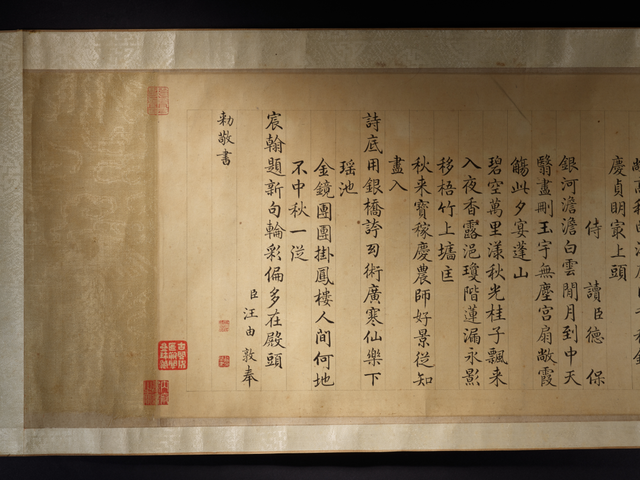 慶貞明家上頭
侍讀臣德保
銀河澹澹白雲閒月到中天
翳盡刪玉宇無塵宮扇敞霞
觴此夕宴蓬山
碧空萬里漾秋光桂子飄来
入夜香露浥瓊階蓮漏永影
移梧竹上墻匡
秋来寶稼慶農師好景從知
盡入
詩底用銀橋誇幻術廣寒仙樂下
瑶池
金鏡團團掛鳳樓人间何地
不中秋一從
宸翰題新句輪彩偏多在殿頭
臣汪由敦奉
勅敬書